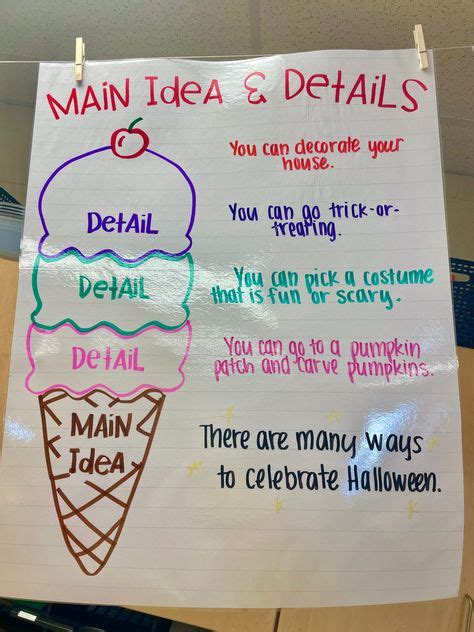 Main Idea & Details
You can decorate your
house.
Detail
You can go trick-or-
treating.
Detail
You can pick a costume
that is fun or scary.
Detail
You can go to a pumpkin
patch and carve pumpkins.
Main
Idea
There are many ways
to celebrate Halloween.